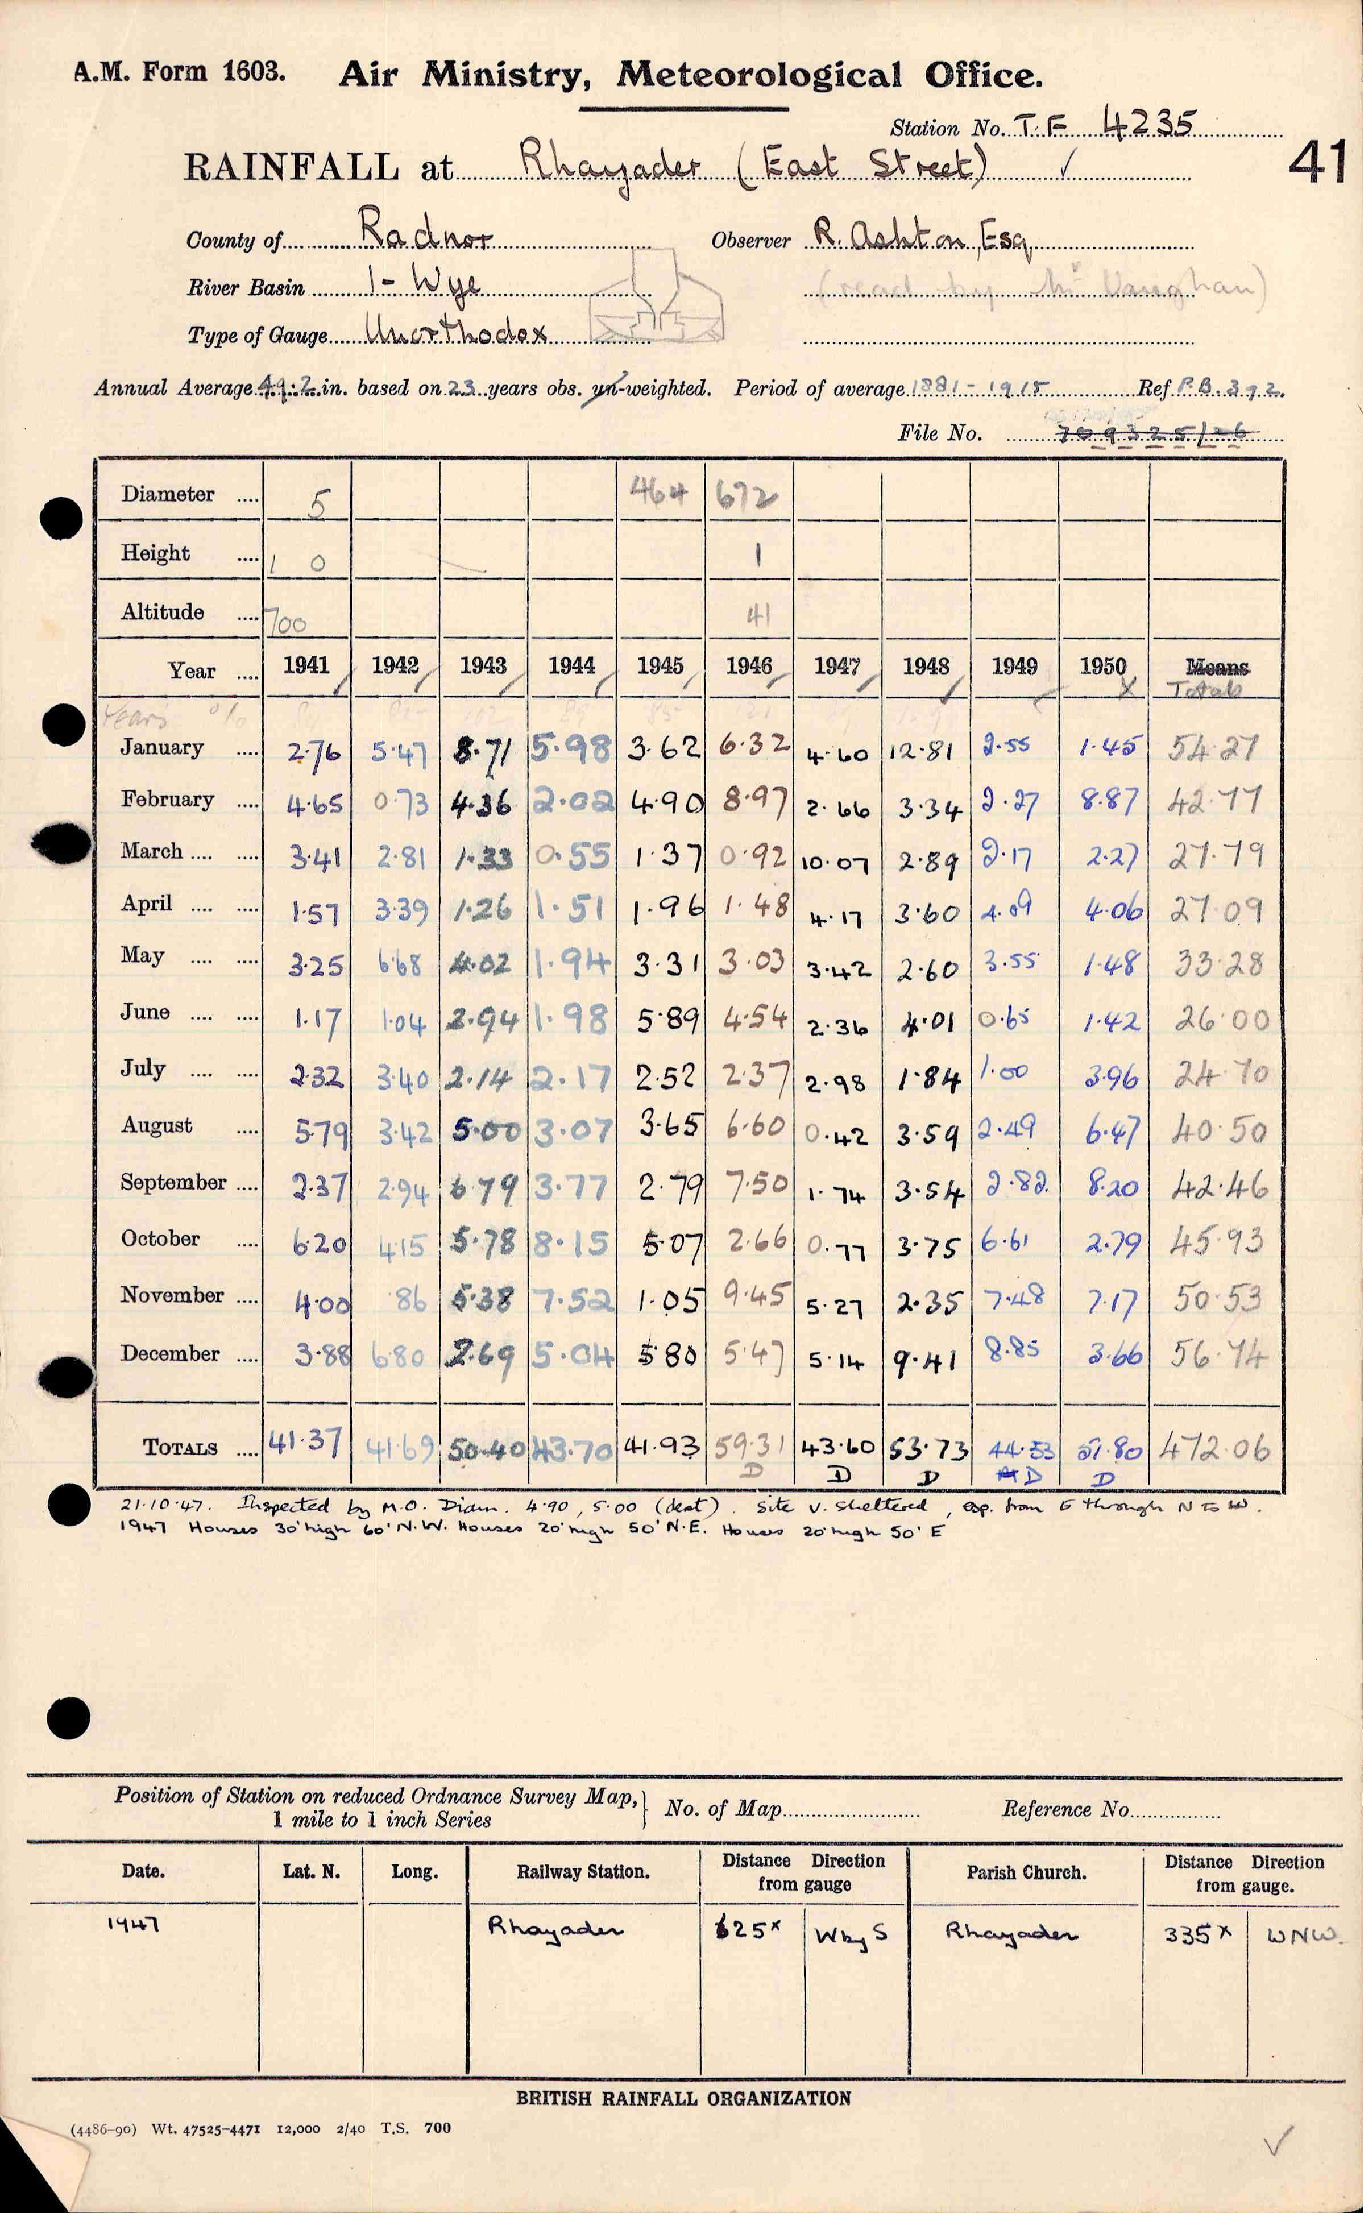 A.M. Form 1603. Air Ministry, Meteorological Office.
Station No. T.F 4235
41
RAINFALL at Rhayader (East Street) ✓
County of Radnor Observer R. Ashton, Esq
River Basin 1- Wye (read by Mr Vaughan)
Type of Gauge Unorthodox
Annual Average 49.2 in. based on 23 years obs. un-weighted. Period of average 1881-1915 Ref P.B. 392.
File No. 709325/26
Diameter .... 5 464 672
Height .... 1 0 1
Altitude .... 700 41
Year .... 1941 1942 1943 1944 1945 1946 1947 1948 1949 1950 Means
Totals
Years %
January .... 2.76 5.47 8.71 5.98 3.62 6.32 4.60 12.81 2.55 1.45 54.27
February .... 4.65 0.73 4.36 2.02 4.90 8.97 2.66 3.34 2.27 8.87 42.77
March .... .... 3.41 2.81 1.33 0.55 1.37 0.92 10.07 2.89 2.17 2.27 27.79
April .... .... 1.57 3.39 1.26 1.51 1.96 1.48 4.17 3.60 4.09 4.06 27.09
May .... .... 3.25 6.68 4.02 1.94 3.31 3.03 3.42 2.60 3.55 1.48 33.28
June .... .... 1.17 1.04 2.94 1.98 5.89 4.54 2.36 4.01 0.65 1.42 26.00
July .... .... 2.32 3.40 2.14 2.17 2.52 2.37 2.98 1.84 1.00 3.96 24.70
August .... 5.79 3.42 5.00 3.07 3.65 6.60 0.42 3.59 2.49 6.47 40.50
September .... 2.37 2.94 6.79 3.77 2.79 7.50 1.74 3.54 2.82 8.20 42.46
October .... 6.20 4.15 5.78 8.15 5.07 2.66 0.77 3.75 6.61 2.79 45.93
November .... 4.00 .86 5.38 7.52 1.05 9.45 5.27 2.35 7.48 7.17 50.53
December .... 3.88 6.80 2.69 5.04 5.80 5.47 5.14 9.41 8.85 3.66 56.74
TOTALS .... 41.37 41.69 50.40 43.70 41.93 59.31 43.60 53.73 44.53 51.80 472.06
D D D D D
21.10.47. Inspected by M.O. Diam. 4.90, 5.00 (dent). Site v. sheltered, esp. from E through N to W.
1947 Houses 30' high 60' N.W. Houses 20' high 50' N.E. Houses 20' high 50' E
Position of Station on reduced Ordnance Survey Map, 1 mile to 1 inch Series } No. of Map Reference No.
Date. Lat. N. Long. Railway Station. Distance Direction from gauge Parish Church. Distance Direction from gauge.
1947 Rhayader 625x W by S Rhayader 335x WNW.
BRITISH RAINFALL ORGANIZATION
(4486-90) Wt. 47525-4471 12,000 2/40 T.S. 700
✓